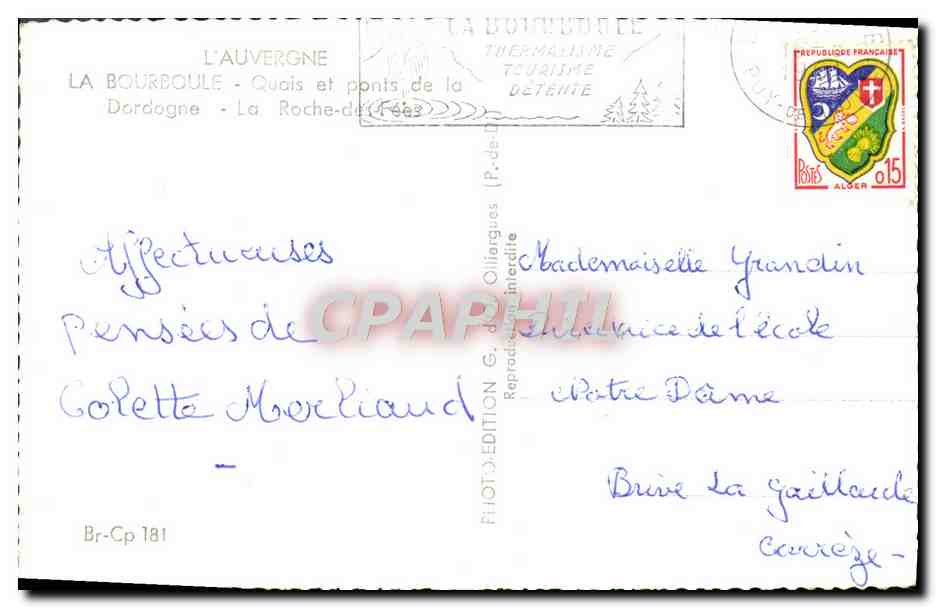 L'AUVERGNE
LA BOURBOULE - Quais et ponts de la
Dordogne - La Roche-des-Fées
LA BOURBOULE
THERMALISME
TOURISME
DÉTENTE
PUY-DE
REPUBLIQUE FRANÇAISE
POSTES
0,15
ALGER
Affectueuses
pensées de
Colette Morliaud
PHOTO-EDITION G. d'O, Olliergues (P.-de-D
Reproduction interdite
CPAPHIL
Mademoiselle Grandin
Directrice de l'école
Notre Dâme
Brive La Gaillarde
Corrèze -
Br-Cp 181